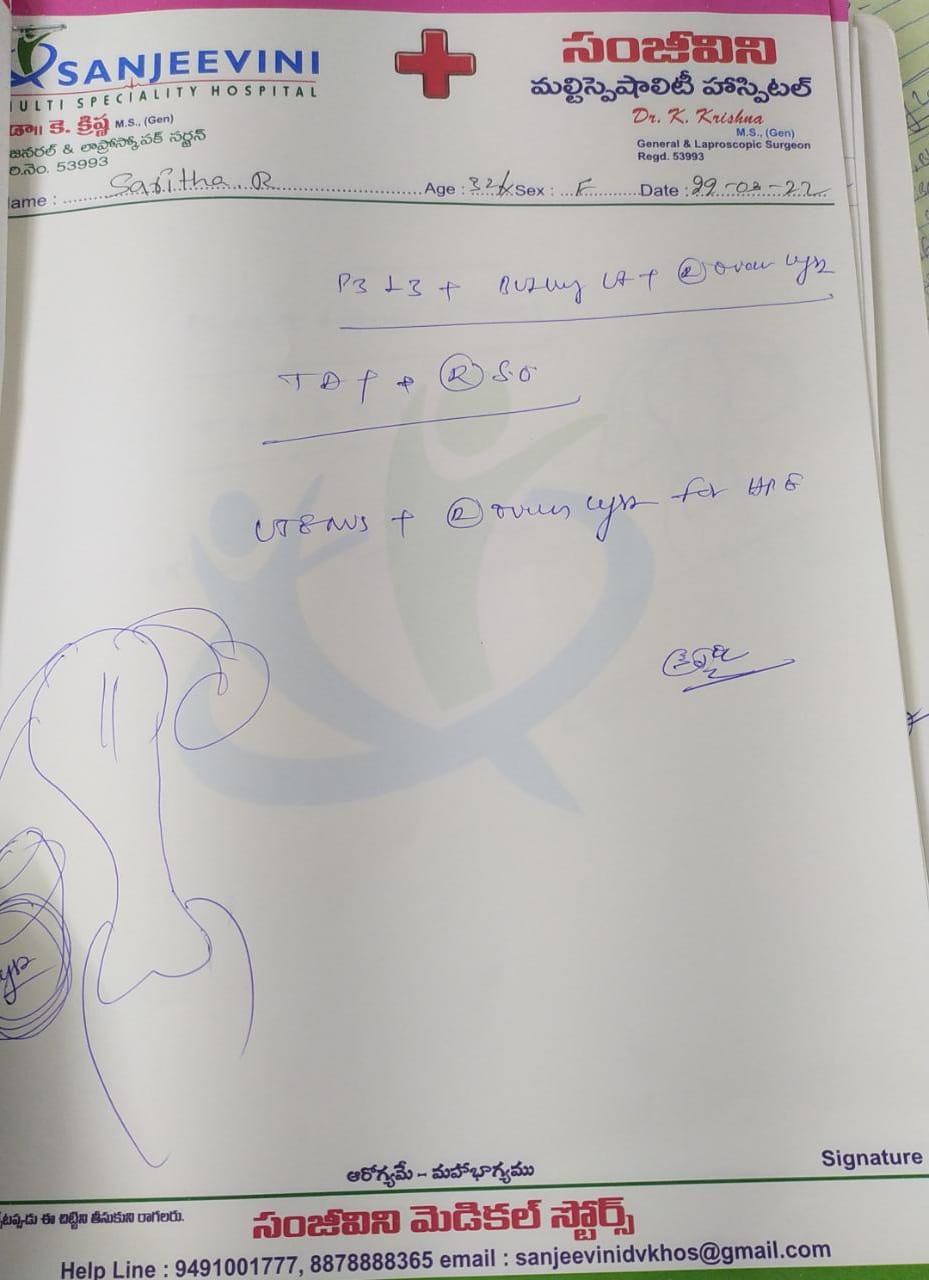 SANJEEVINI
ULTI SPECIALITY HOSPITAL
డా॥ కె. క్రిష్ణ M.S., (Gen)
జనరల్ & లాప్రోస్కోపిక్ సర్జన్
రి.నెం. 53993
సంజీవిని
మల్టిస్పెషాలిటీ హాస్పిటల్
Dr. K. Krishna
M.S., (Gen)
General & Laproscopic Surgeon
Regd. 53993
ame : Saritha. R Age : 32 Sex : F Date : 29-03-22
P3 L3 + + R cyst
+ R SO
UTERUS + R cyst for HPE
ఆరోగ్యమే - మహాభాగ్యము
Signature
ఈ చిట్టిని తీసుకుని రాగలరు.
సంజీవిని మెడికల్ స్టోర్స్
Help Line : 9491001777, 8878888365 email : sanjeevinidvkhos@gmail.com